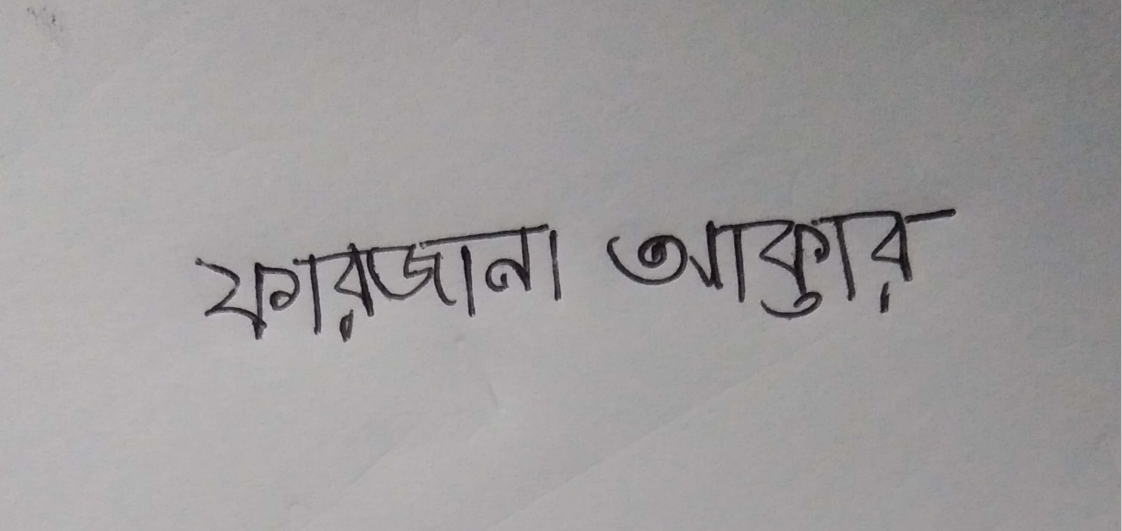 ফারজানা আক্তার